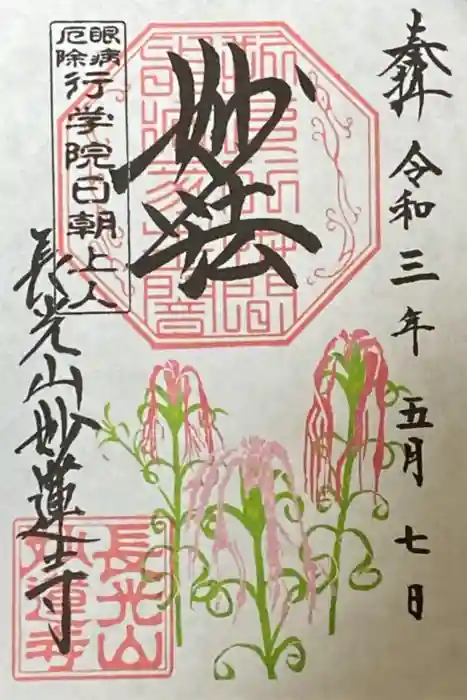 奉拝
令和三年五月七日
妙法
眼病
厄除
行学院日朝上人
長光山妙蓮寺
長光山
妙蓮寺